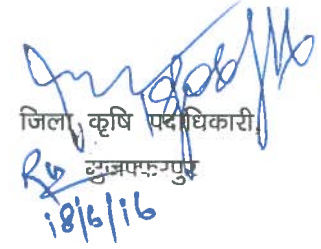 जिला कृषि पदाधिकारी,
मुजफ्फरपुर
18/6/16